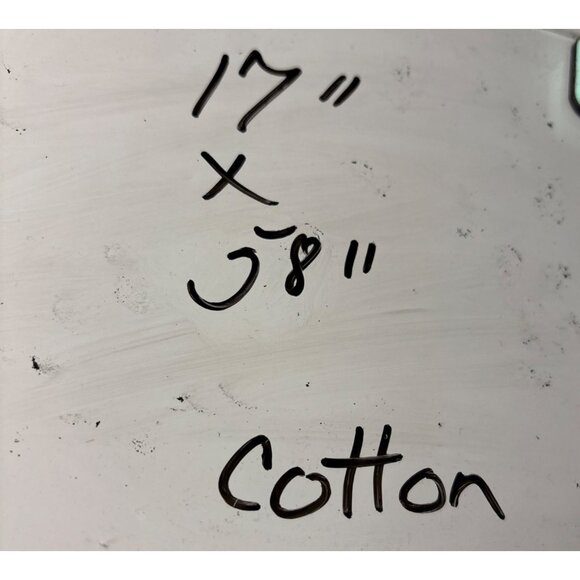 17"
X
58"
Cotton